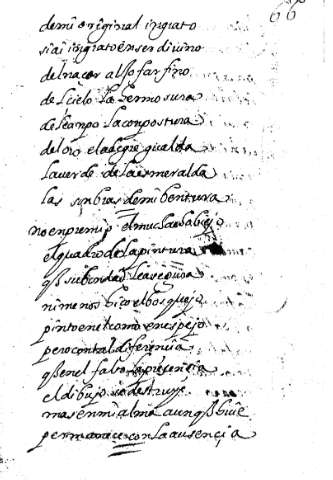 66
de mi original ingrato
si ai ingrato en ser divino
del nacar al
del cielo la hermosura
del canpo la conpostura
del oro el
la verde de la esmeralda
las sonbras de mi bentura
no en premio el
el quadro de la pintura
q̃ su bondad le asegura
ni menos el bosquejo
pinto en el como en espejo
pero con tal diferencia
q̃ en el falto la presencia
el dibujo se destruye
mas en mi alma aunq̃ huie
permanece con la ausençia